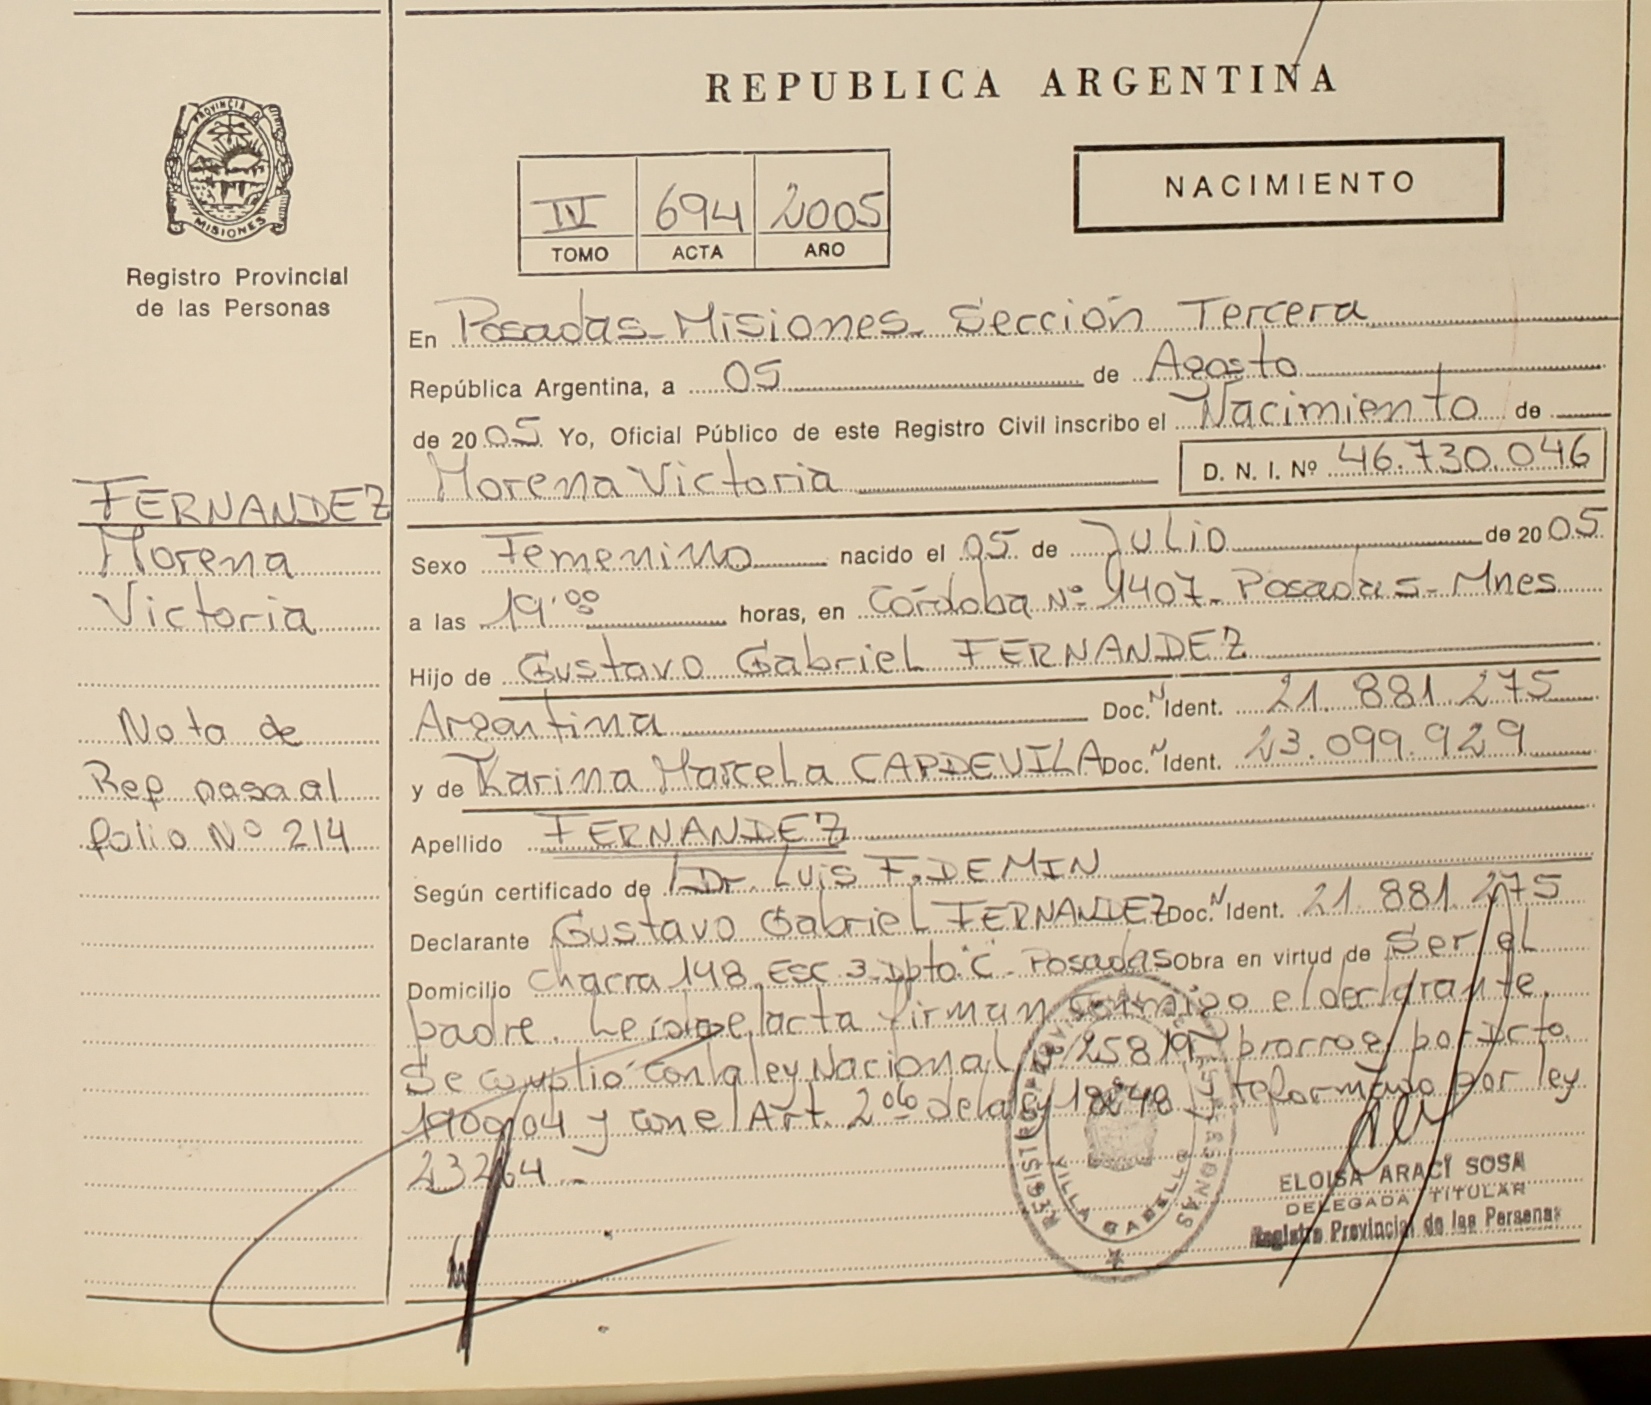 REPUBLICA ARGENTINA
PROVINCIA D MISIONES
Registro Provincial
de las Personas
IV 694 2005
TOMO ACTA AÑO
NACIMIENTO
En Posadas-Misiones- Sección Tercera
República Argentina, a 05 de Agosto
de 2005 Yo, Oficial Público de este Registro Civil inscribo el Nacimiento de
Morena Victoria D. N. I. Nº 46.730.046
FERNANDEZ
Morena
Victoria
Sexo Femenino nacido el 05 de Julio de 2005
a las 19:00 horas, en Córdoba Nº 1407- Posadas- Mnes
Hijo de Gustavo Gabriel FERNANDEZ
Argentina Doc. N Ident. 21.881.275
y de Karina Marcela CAPDEVILA Doc. N Ident. 23.099.929
Nota de
Ref pasa al
folio Nº 214
Apellido FERNANDEZ
Según certificado de Dr. Luis F. DEMIN
Declarante Gustavo Gabriel FERNANDEZ Doc. N Ident. 21.881.275
Domicilio Chacra 148 Esc 3 Dpto "C" - Posadas Obra en virtud de Ser el
padre. Leida el acta firman conmigo el declarante.
Se cumplió con la ley Nacional Nº 25819 prorrog. por Dcto
1900/04 y con el Art. 2º de la ley 18248 y reformado por ley
23264-
REGISTRO PROVINCIAL DE LAS PERSONAS
VILLA CABELLO
ELOISA ARACÍ SOSA
DELEGADA TITULAR
Registro Provincial de las Personas